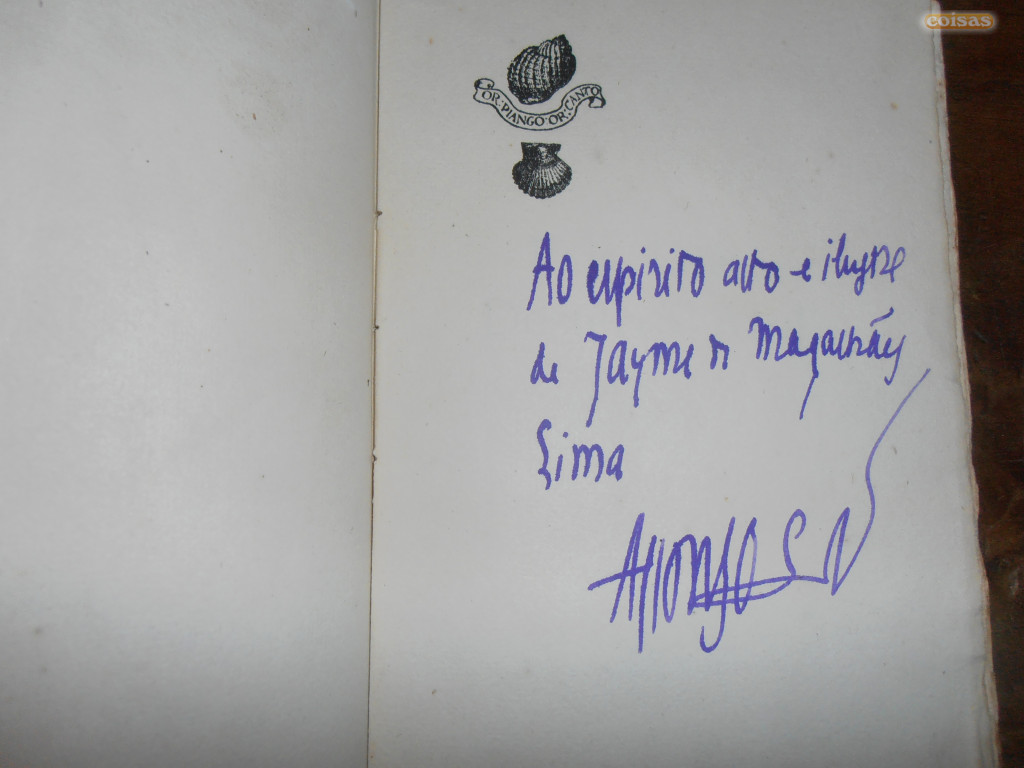 coisas
OR·PIANGO·OR·CANTO
Ao espirito alto e ilustre
de Jayme de Magalhães
Lima
Affonso